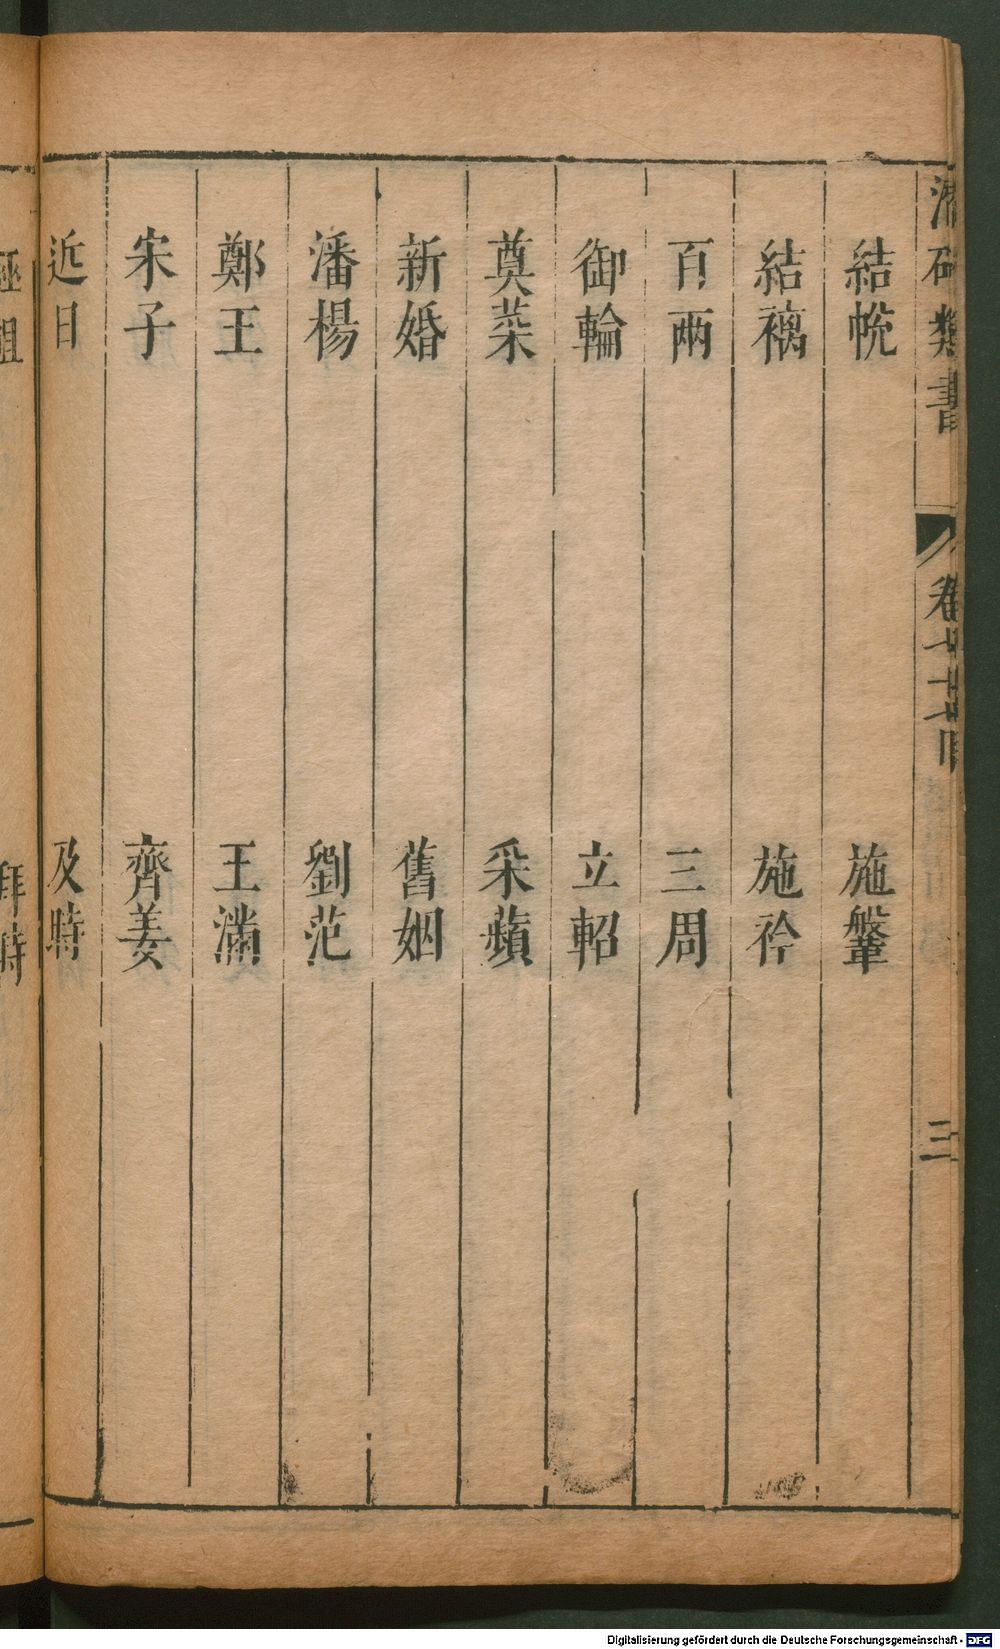 類書
卷
三
結帨 施鞶
結褵 施衿
百兩 三周
御輪 立軺
奠菜 采蘋
新婚 舊姻
潘楊 劉范
鄭王 王滿
宋子 齊姜
近日 及時
拜時
Digitalisierung gefördert durch die Deutsche Forschungsgemeinschaft - DFG